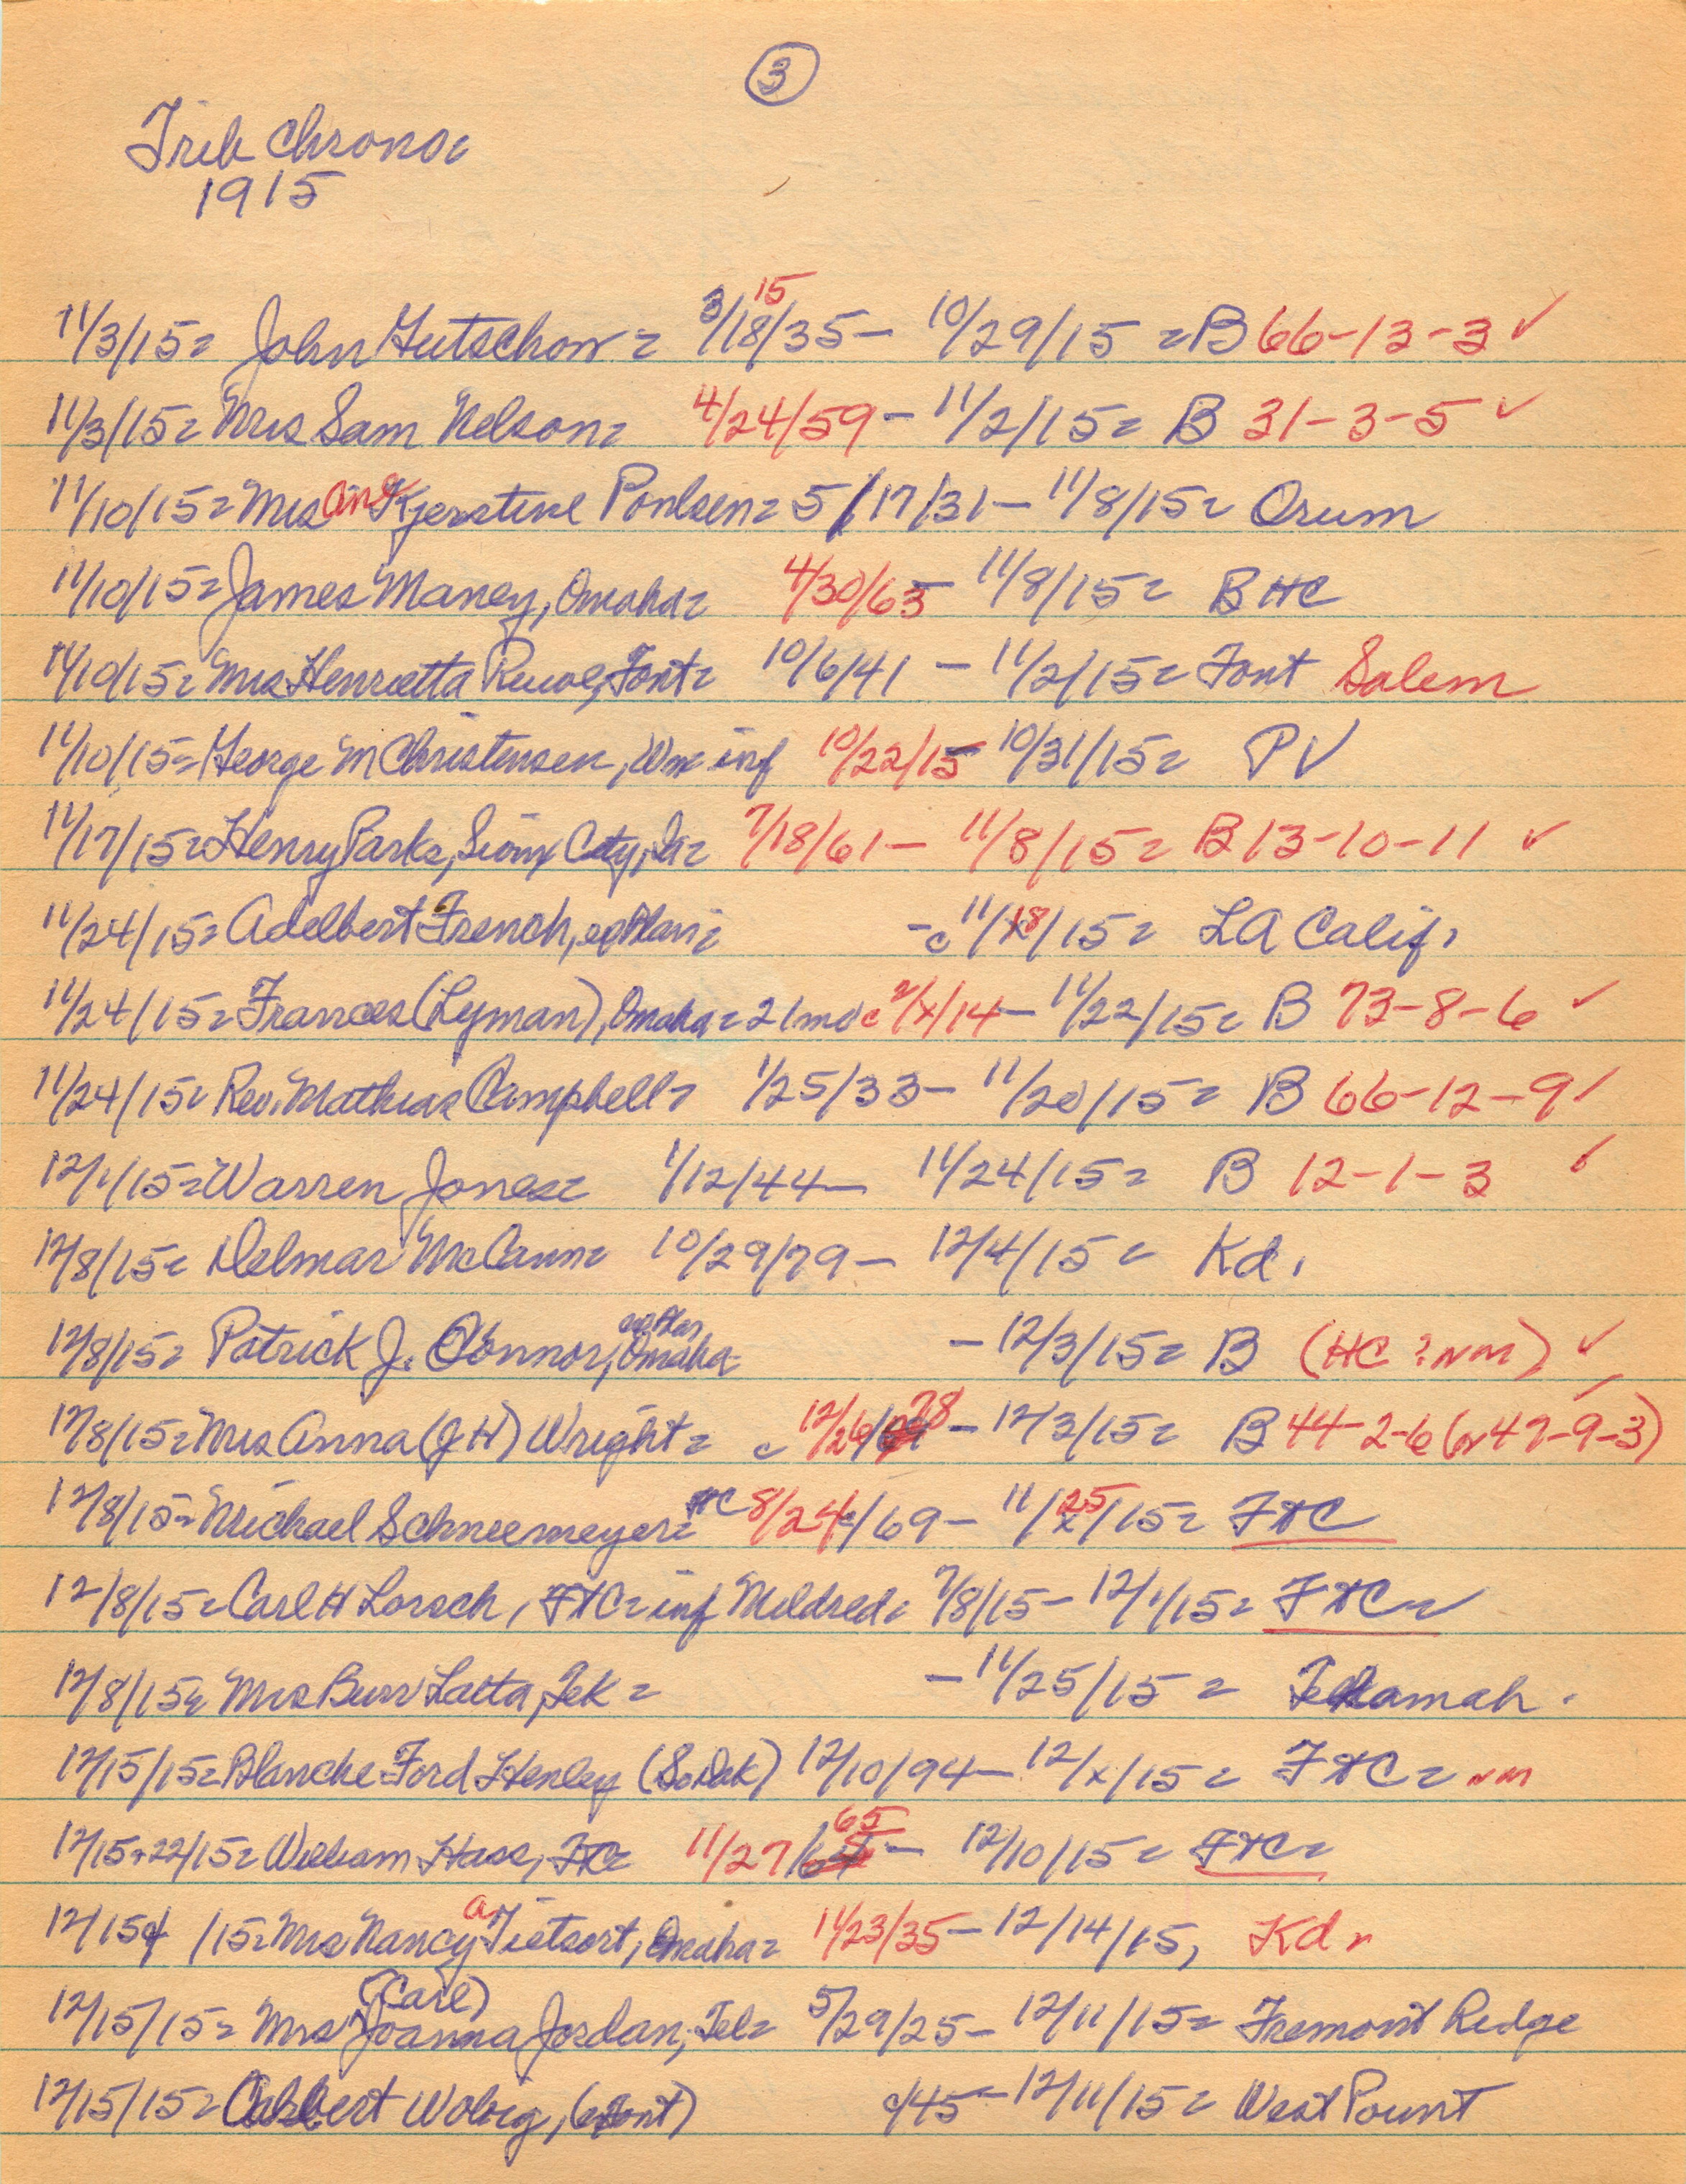 3
Trib Chrono:
1915
11/3/15= John Gutschow= 3/18/35- 15 10/29/15 = B 66-13-3 ✓
11/3/15= Mrs Sam Nelson= 4/24/59 - 11/2/15= B 31-3-5 ✓
11/10/15= Mrs Kjerstine Poulsen= 5/17/31- 11/8/15= Orum
11/10/15= James Maney, Omaha= 4/30/63- 11/8/15= B HC
11/10/15= Mrs Henrietta Ruwe, Font= 10/6/41 - 11/2/15= Font Salem
11/10/15= George M Christensen, inf 10/22/15 10/31/15= PV
11/17/15= Henry Parks, Sioux City, Ia= 7/18/61- 11/8/15= B 13-10-11 ✓
11/24/15= Adelbert French, - c 11/18/15= LA Calif.
11/24/15= Frances (Lyman), Omaha= 21mo c 2/x/14- 11/22/15= B 73-8-6 ✓
11/24/15= Rev. Mathias Campbell= 1/25/33- 11/20/15= B 66-12-9 ✓
12/1/15= Warren Jones= 1/12/44- 11/24/15= B 12-1-3 ✓
12/8/15= Delmar McCann= 10/29/79- 12/4/15= Kd.
12/8/15= Patrick J. O'Connor, Omaha - 12/3/15= B (HC ? nm) ✓
12/8/15= Mrs Anna (JH) Wright= c 12/26/78 - 12/3/15= B 44-2-6 (or 47-9-3) ✓
12/8/15= Michael Schneemeyer= FtC 8/24/69- 11/25/15= FtC
12/8/15= Carl H Lorsch, FtC= inf Mildred= 7/8/15- 12/1/15= FtC=
12/8/15= Mrs Burr Latta, Tek= - 11/25/15= Tekamah.
12/15/15= Blanche Ford Henley (So Dak) 12/10/94- 12/x/15= FtC= nm
12/15+22/15= William Hass, FtC= 11/27/65 - 12/10/15= FtC=
12/15 /15= Mrs Nancy a Tietsort, Omaha= 11/23/35- 12/14/15, Kd=
12/15/15= Mrs (Carl) Joanna Jordan, Tek= 5/29/25- 12/11/15= Fremont Ridge
12/15/15= Wobig, c/45- 12/11/15= West Point